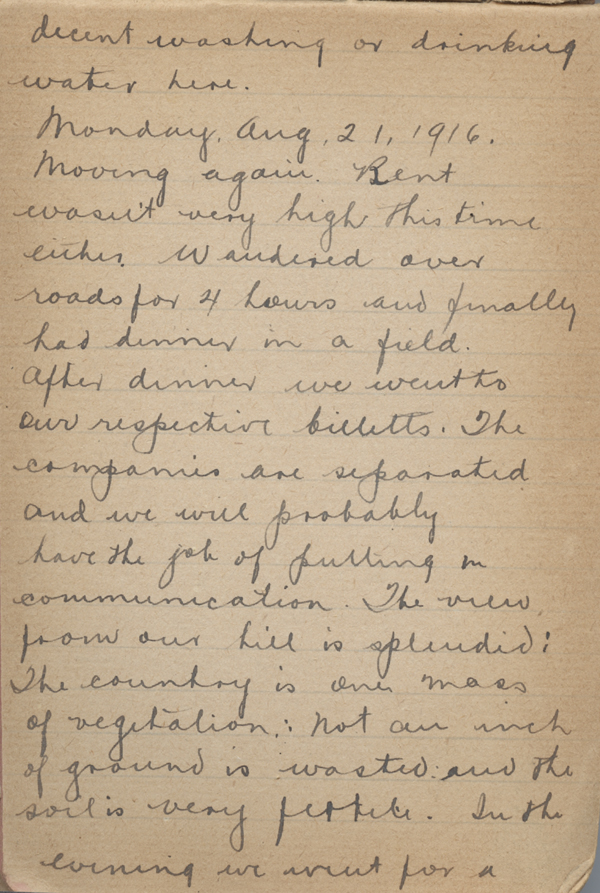 decent washing or drinking
water here.
Monday, Aug, 21, 1916.
Moving again. Rent
wasn't very high this time
either. Wandered over
roads for 4 hours and finally
had dinner in a field.
After dinner we went to
our respective billetts. The
companies are separated
and we will probably
have the job of putting in
communication. The view
from our hill is splendid:
The country is one mass
of vegetation: Not an inch
of ground is wasted and the
soil is very fertile. In the
evening we went for a